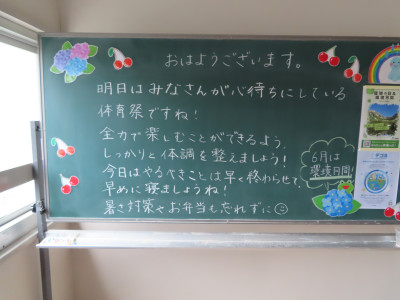 おはようございます。
明日はみなさんが心待ちにしている
体育祭ですね！
全力で楽しむことができるよう、
しっかりと体調を整えましょう！
今日はやるべきことは早く終わらせて、
早めに寝ましょうね！
暑さ対策やお弁当も忘れずに
6月は
環境月間！